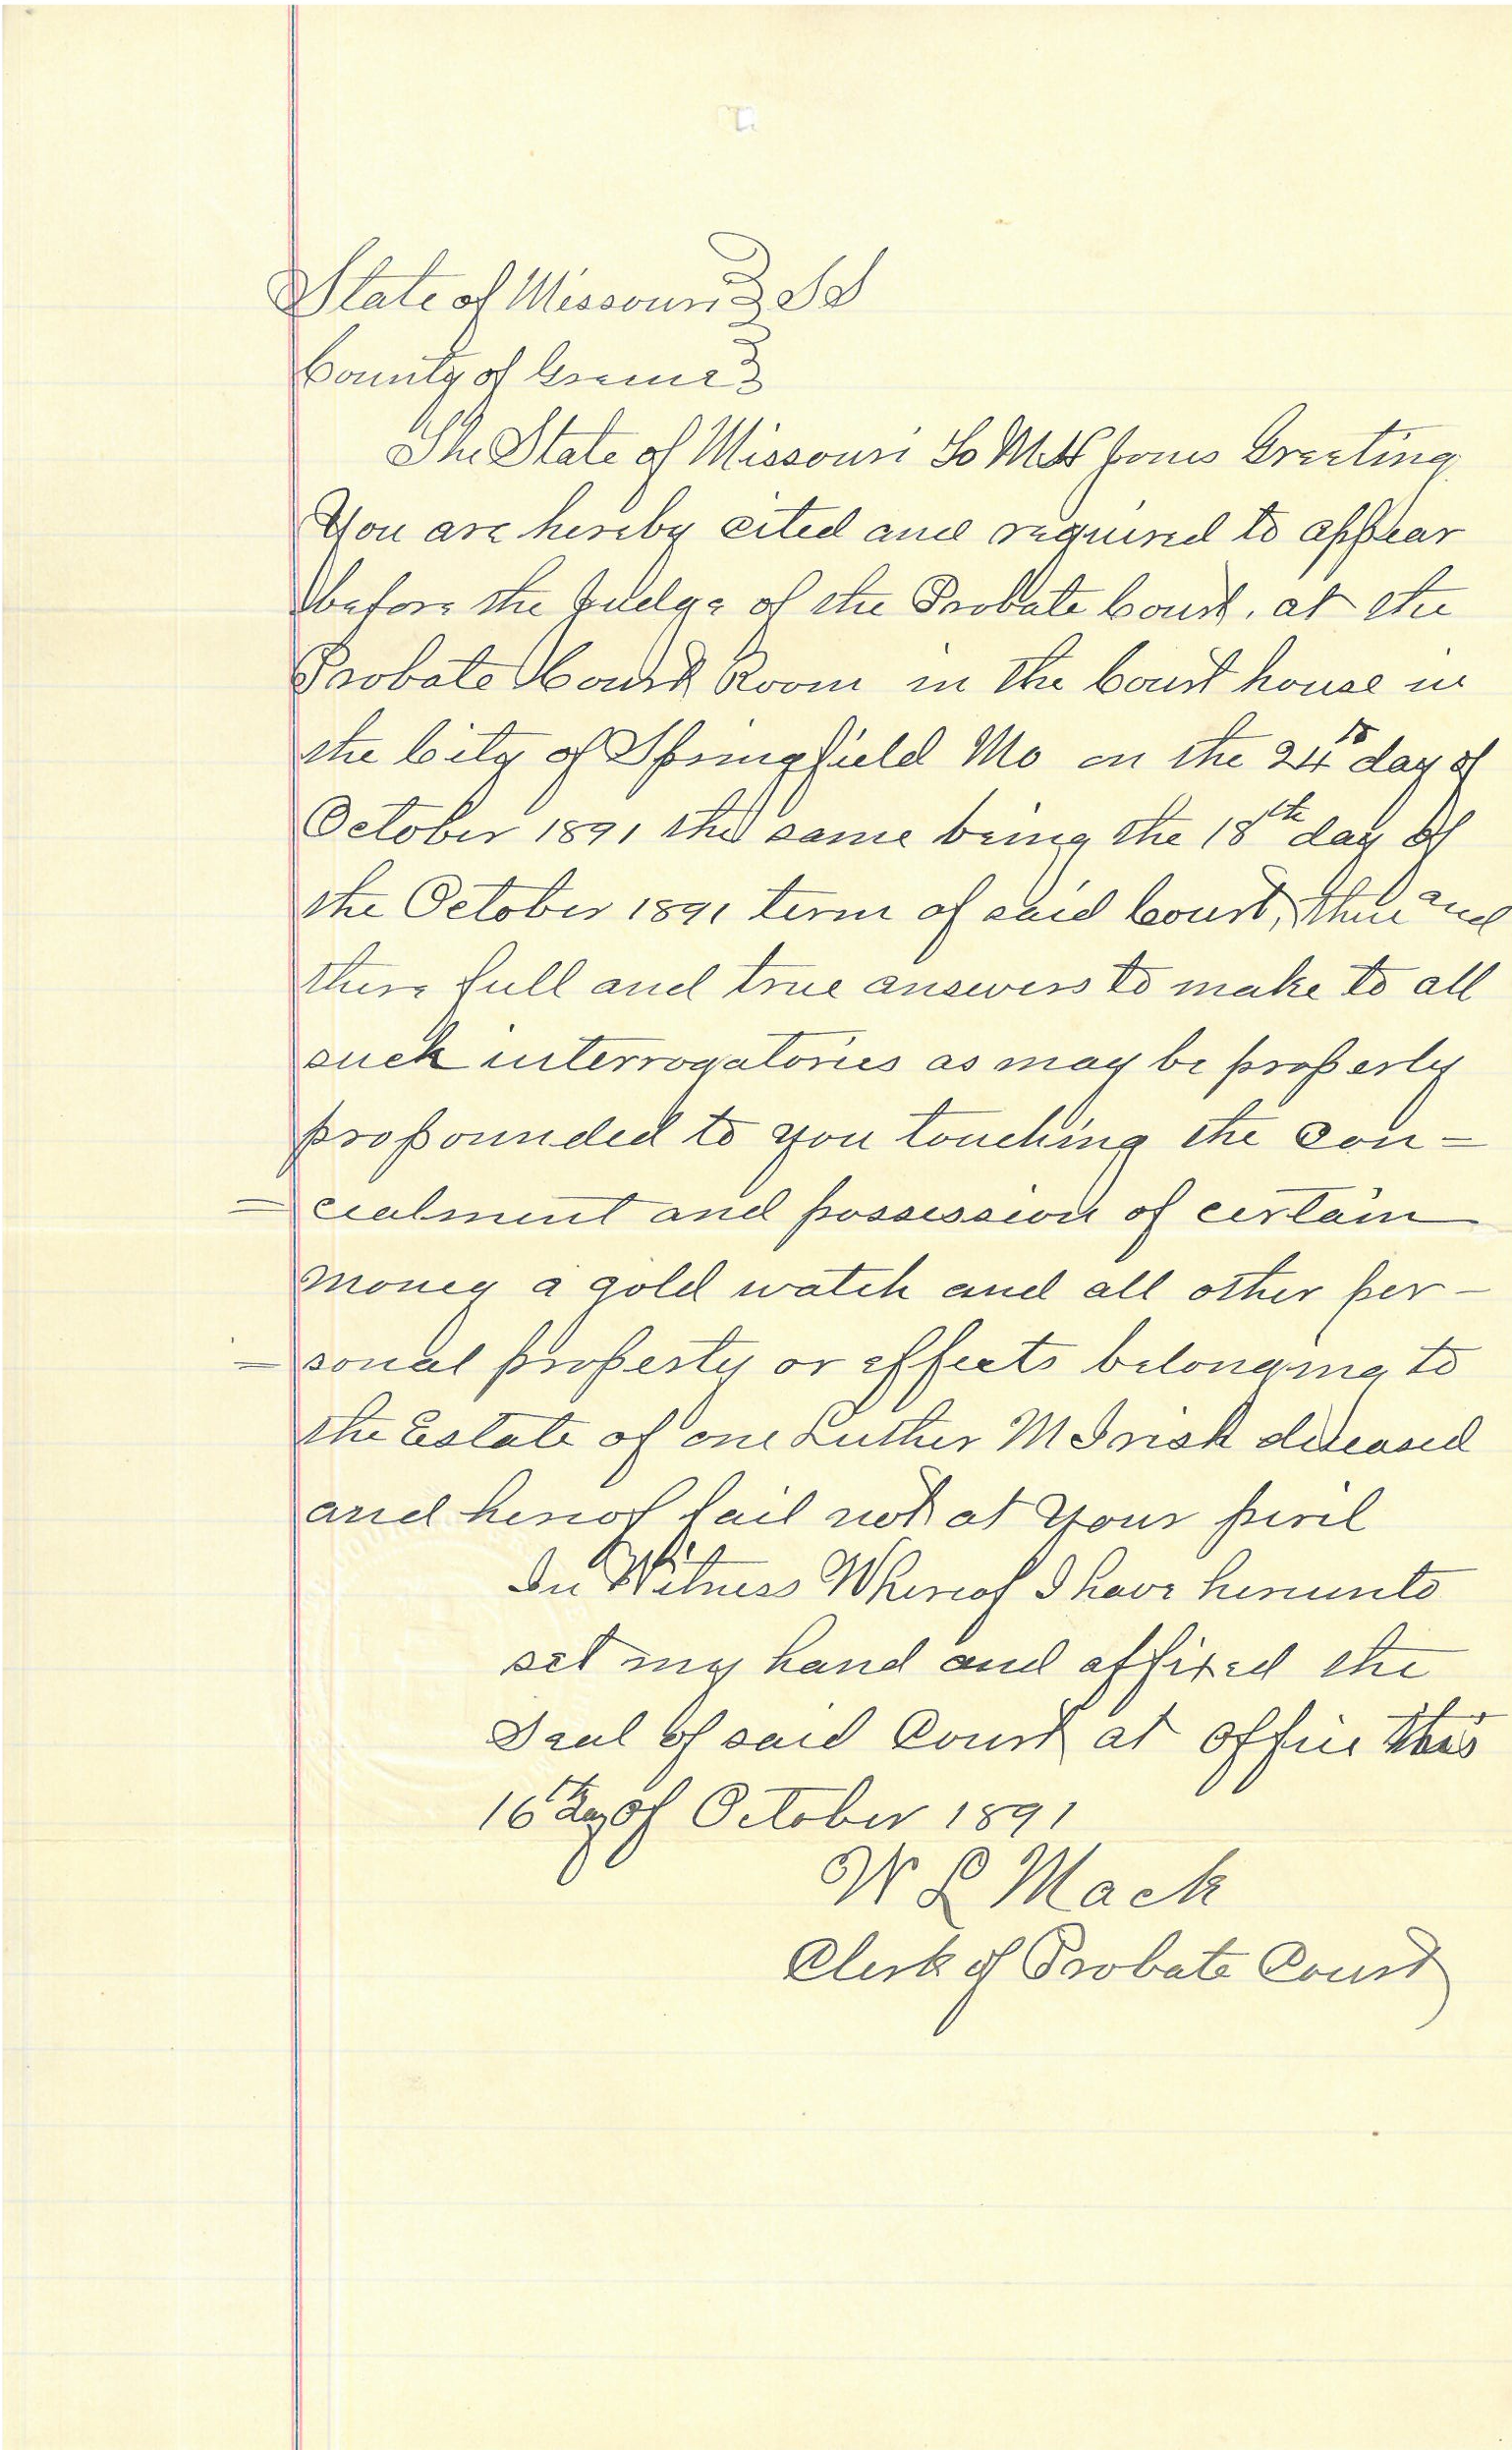 State of Missouri } SS
County of Greene }
The State of Missouri To M H Jones Greeting
You are hereby cited and required to appear
before the Judge of the Probate Court, at the
Probate Court Room in the Court house in
the City of Springfield Mo on the 24th day of
October 1891 the same being the 18th day of
the October 1891 term of said Court, then and
there full and true answers to make to all
such interrogatories as may be properly
propounded to you touching the con=
=cealment and possession of certain
money a gold watch and all other per-
=sonal property or effects belonging to
the Estate of one Luther M Irish deceased
and hereof fail not at your peril
In Witness Whereof I have hereunto
set my hand and affixed the
Seal of said Court at office this
16th day of October 1891
W L Mack
Clerk of Probate Court